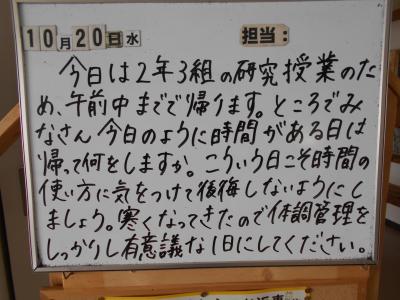 10月20日水 担当：
今日は2年3組の研究授業のた
め、午前中までで帰ります。ところでみ
なさん今日のように時間がある日は
帰って何をしますか。こういう日こそ時間の
使い方に気をつけて後悔しないようにし
ましょう。寒くなってきたので体調管理を
しっかりし有意議な1日にしてください。